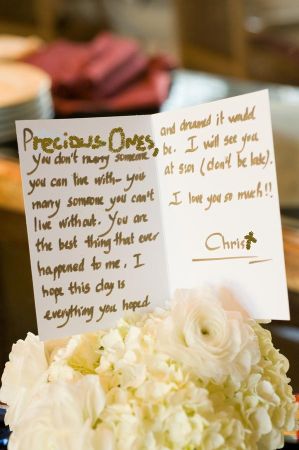 Precious Ones,
You don't marry someone
you can live with - you
marry someone you can't
live without. You are
the best thing that ever
happened to me. I
hope this day is
everything you hoped
and dreamed it would
be. I will see you
at 5:01 (don't be late).
I love you so much!!
Chris